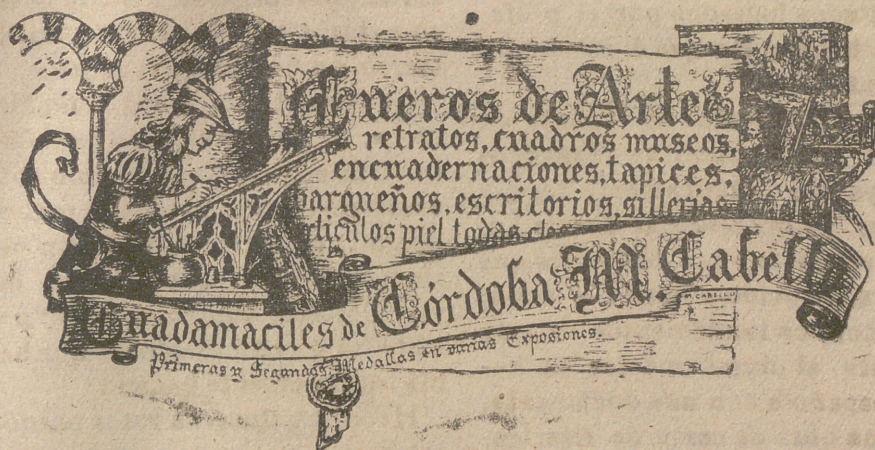 Cueros de Arte
retratos, cuadros museos,
encuadernaciones, tapices,
bargueños, escritorios, sillerias
articulos piel todas
Guadamaciles de Córdoba M. Cabello
M. CABELLO
Primeras y Segundas Medallas en varias Exposiones.